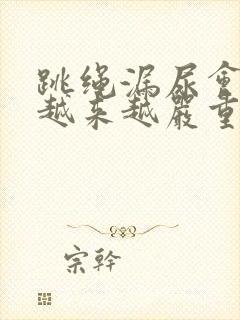 跳绳漏尿會
越来越嚴重
宗幹